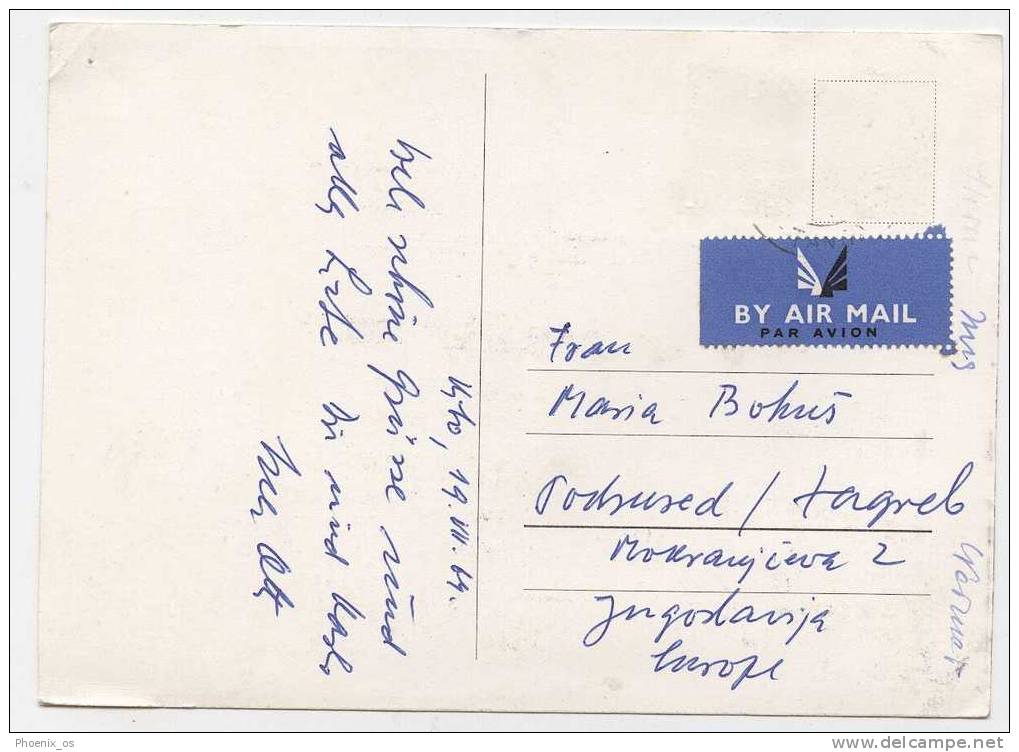 19. VII. 64.
viele schöne Grüsse und
alles Liebe Dir und
BY AIR MAIL
PAR AVION
Frau
Maria Bokuš
Podsused / Zagreb
Mokranjčeva 2
Jugoslavija
Europe
Phoenix_os
delcampe.net